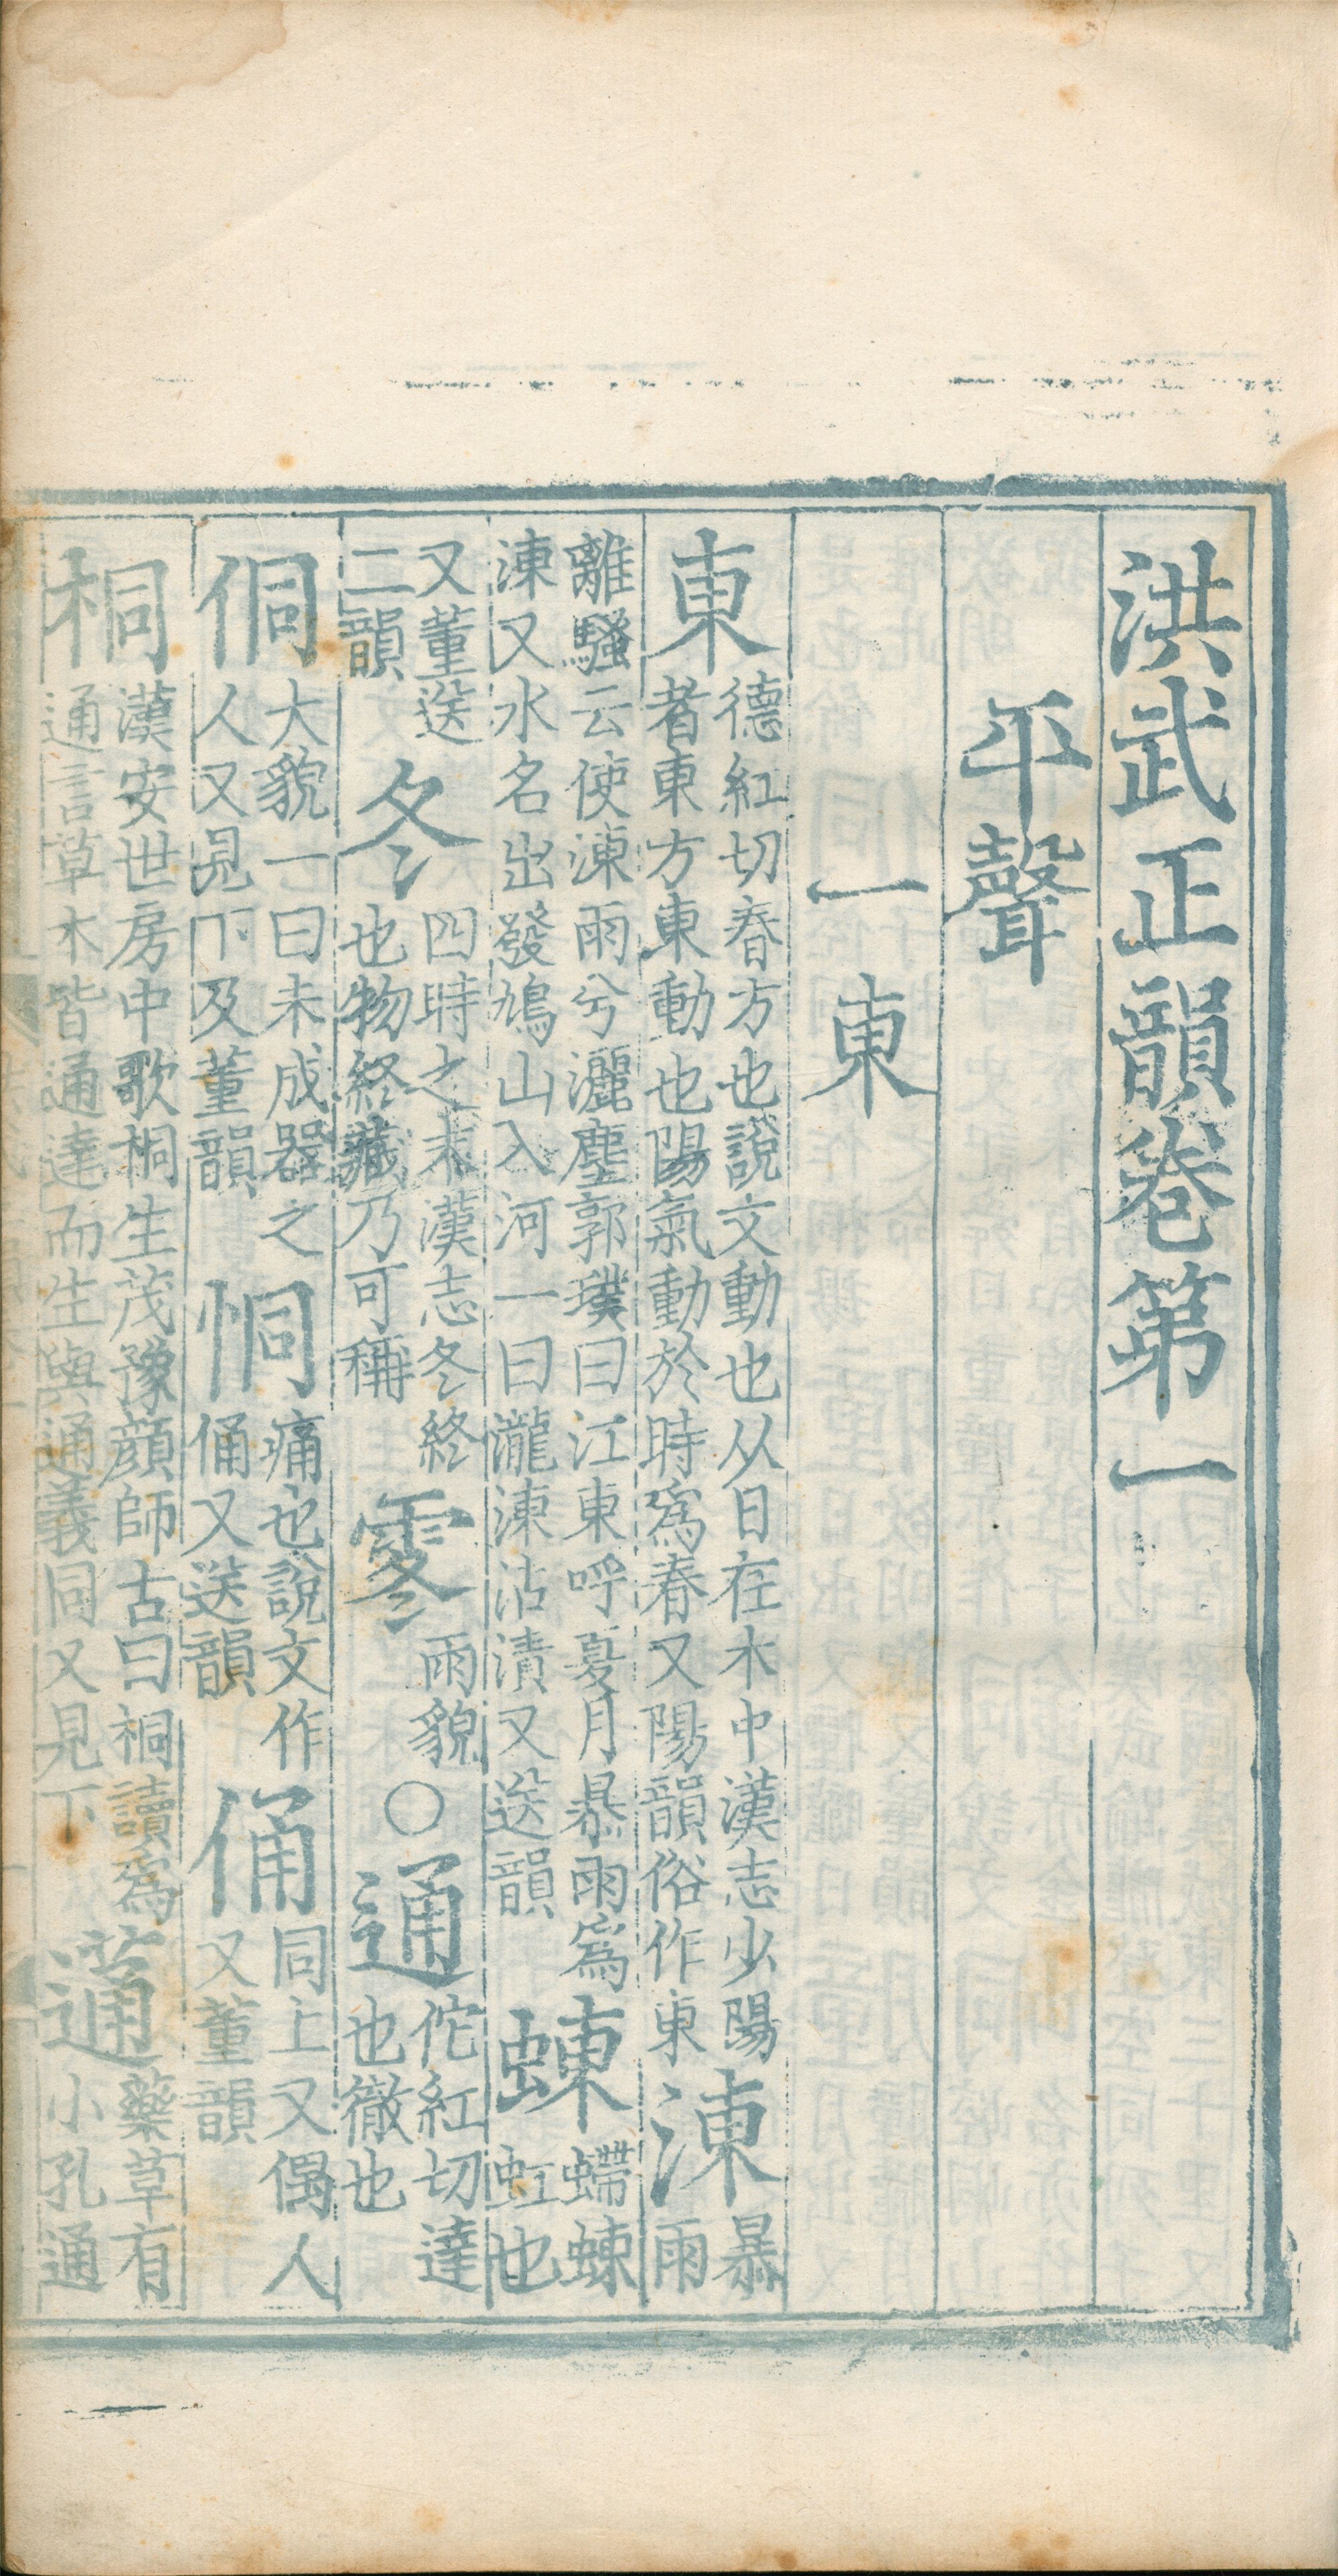 洪武正韻卷第一
平聲
一東
東德紅切春方也說文動也从日在木中漢志少陽者東方東動也陽氣動於時爲春又陽韻俗作東涷暴雨
離騷云使涷雨兮灑塵郭璞曰江東呼夏月暴雨爲涷又水名出發鳩山入河一曰瀧涷沾漬又送韻蝀螮蝀虹也
又董送二韻冬四時之末漢志冬終也物終藏乃可稱䨦雨貌○通佗紅切達也徹也
侗大貌一曰未成器之人又見下及董韻恫痛也說文作俑又送韻俑同上又偶人又董韻
桐漢安世房中歌桐生茂豫顔師古曰桐讀爲通言草木皆通達而生與通義同又見下蓪藥草有小孔通